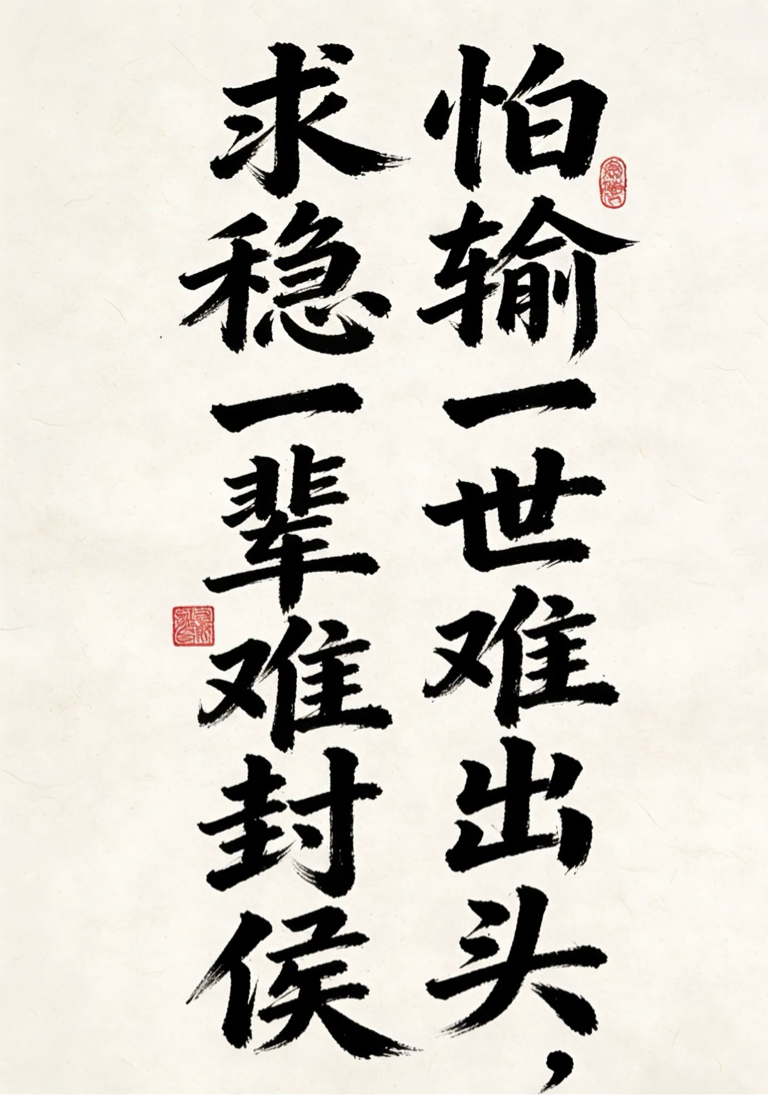 怕输一世难出头，
求稳一辈难封侯